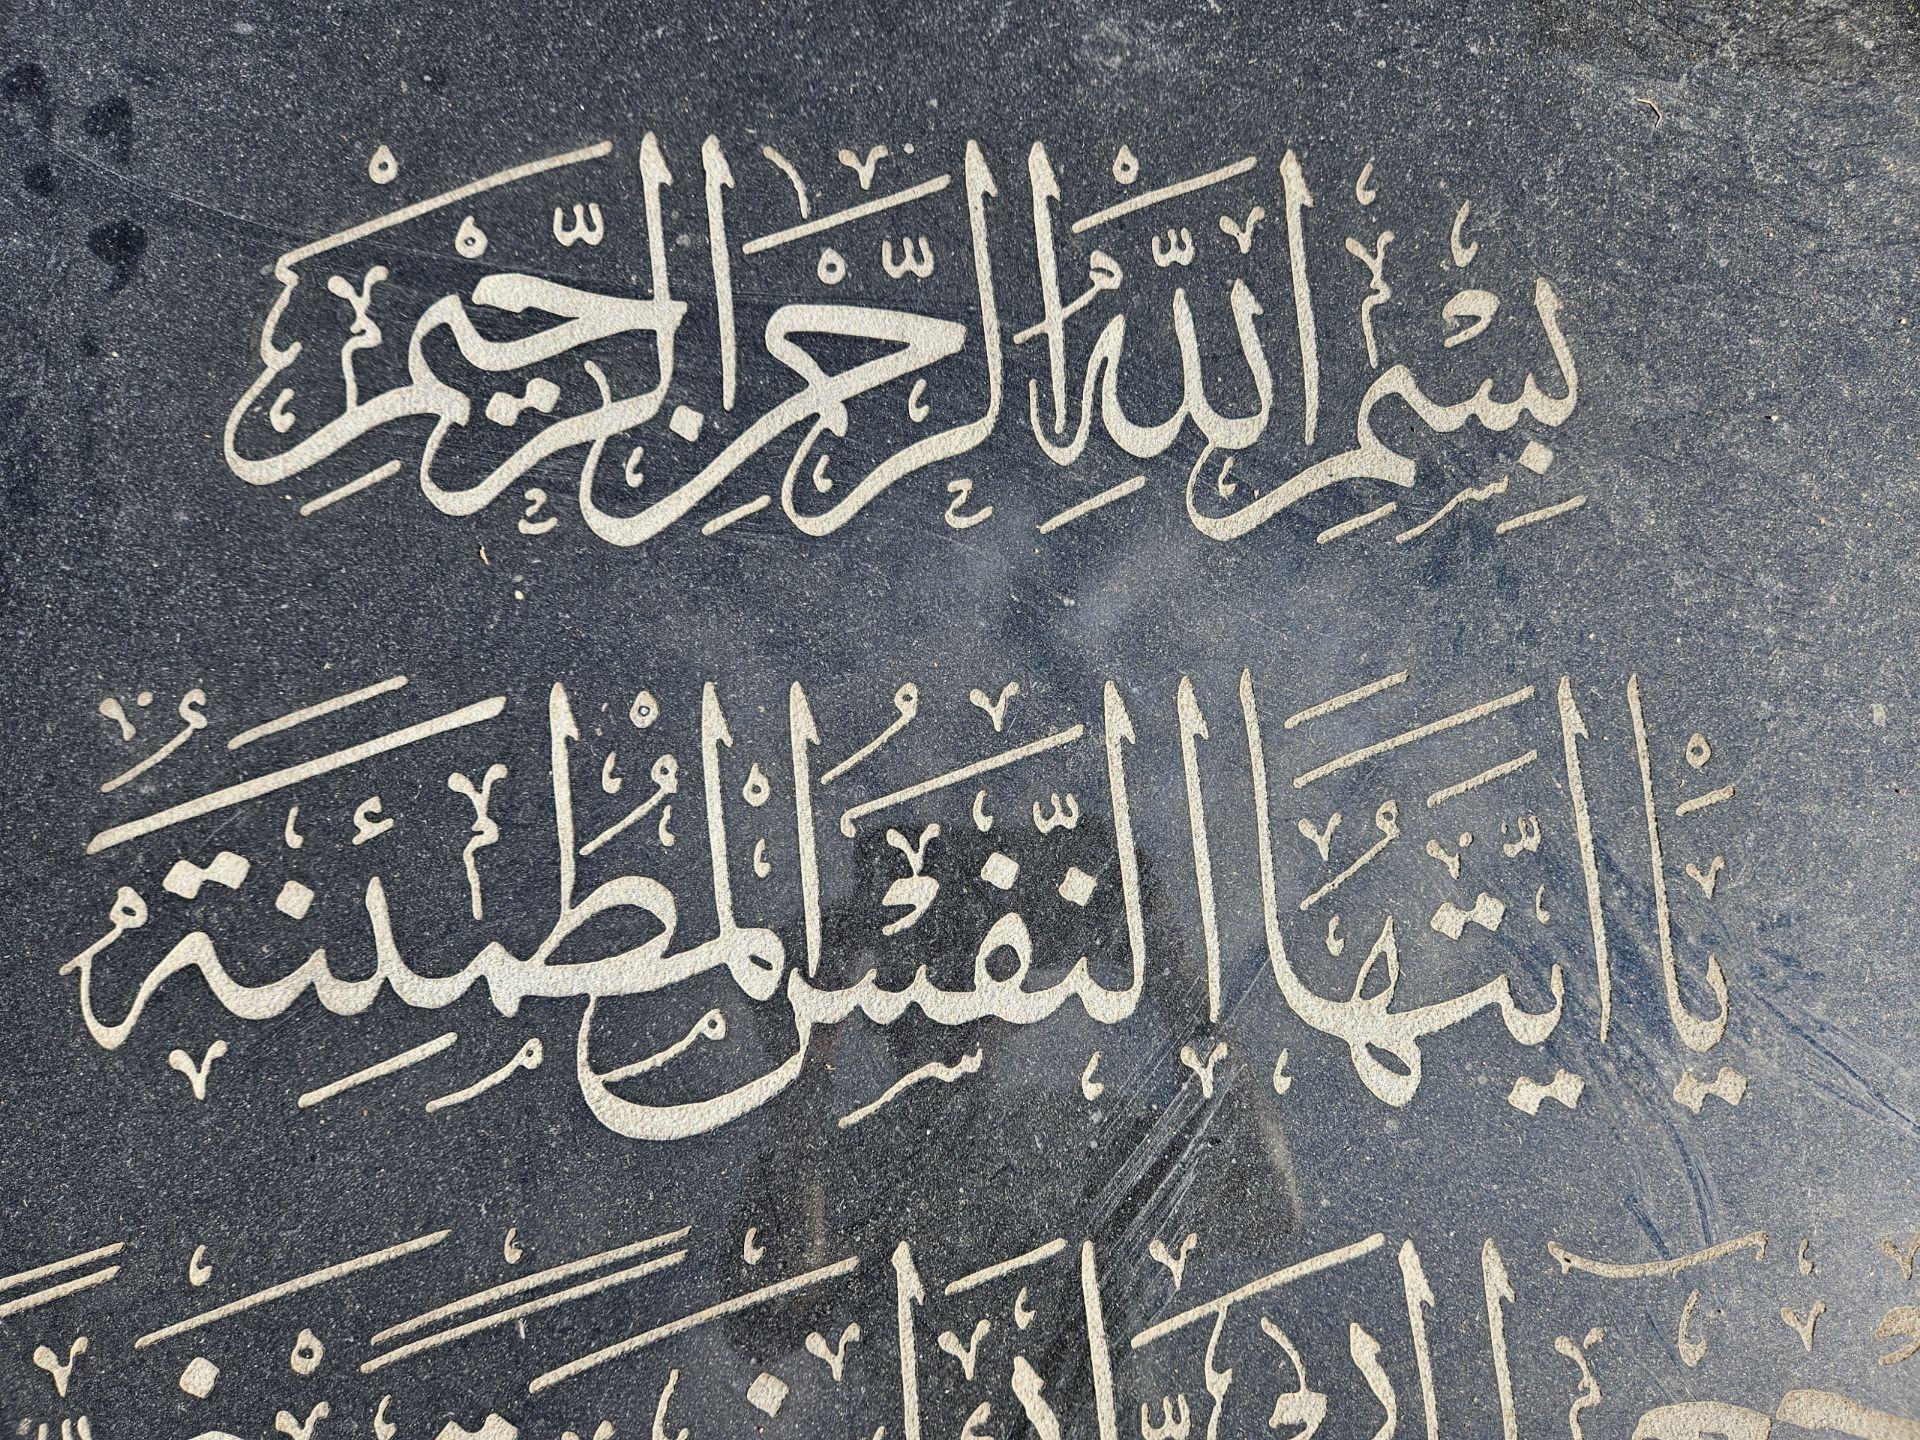 بِسْمِ اللَّهِ الرَّحْمَنِ الرَّحِيمِ
يَا أَيَّتُهَا النَّفْسُ الْمُطْمَئِنَّةُ